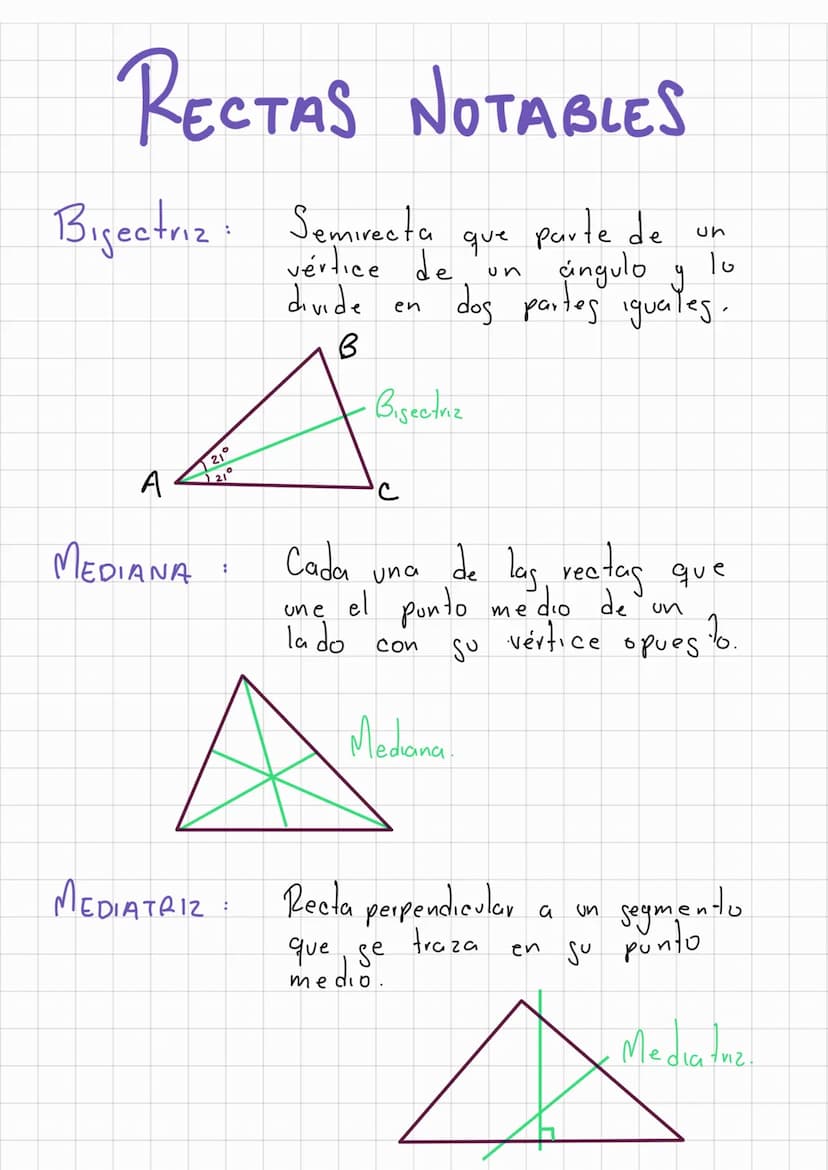 RECTAS NOTABLES
Bisectriz : Semirecta que parte de un
vértice de un ángulo y lo
divide en dos partes iguales.
B
Bisectriz
21°
21°
A
C
MEDIANA : Cada una de las rectas que
une el punto medio de un
lado con su vértice opuesto.
Mediana.
MEDIATRIZ : Recta perpendicular a un segmento
que se traza en su punto
medio.
Mediatriz.